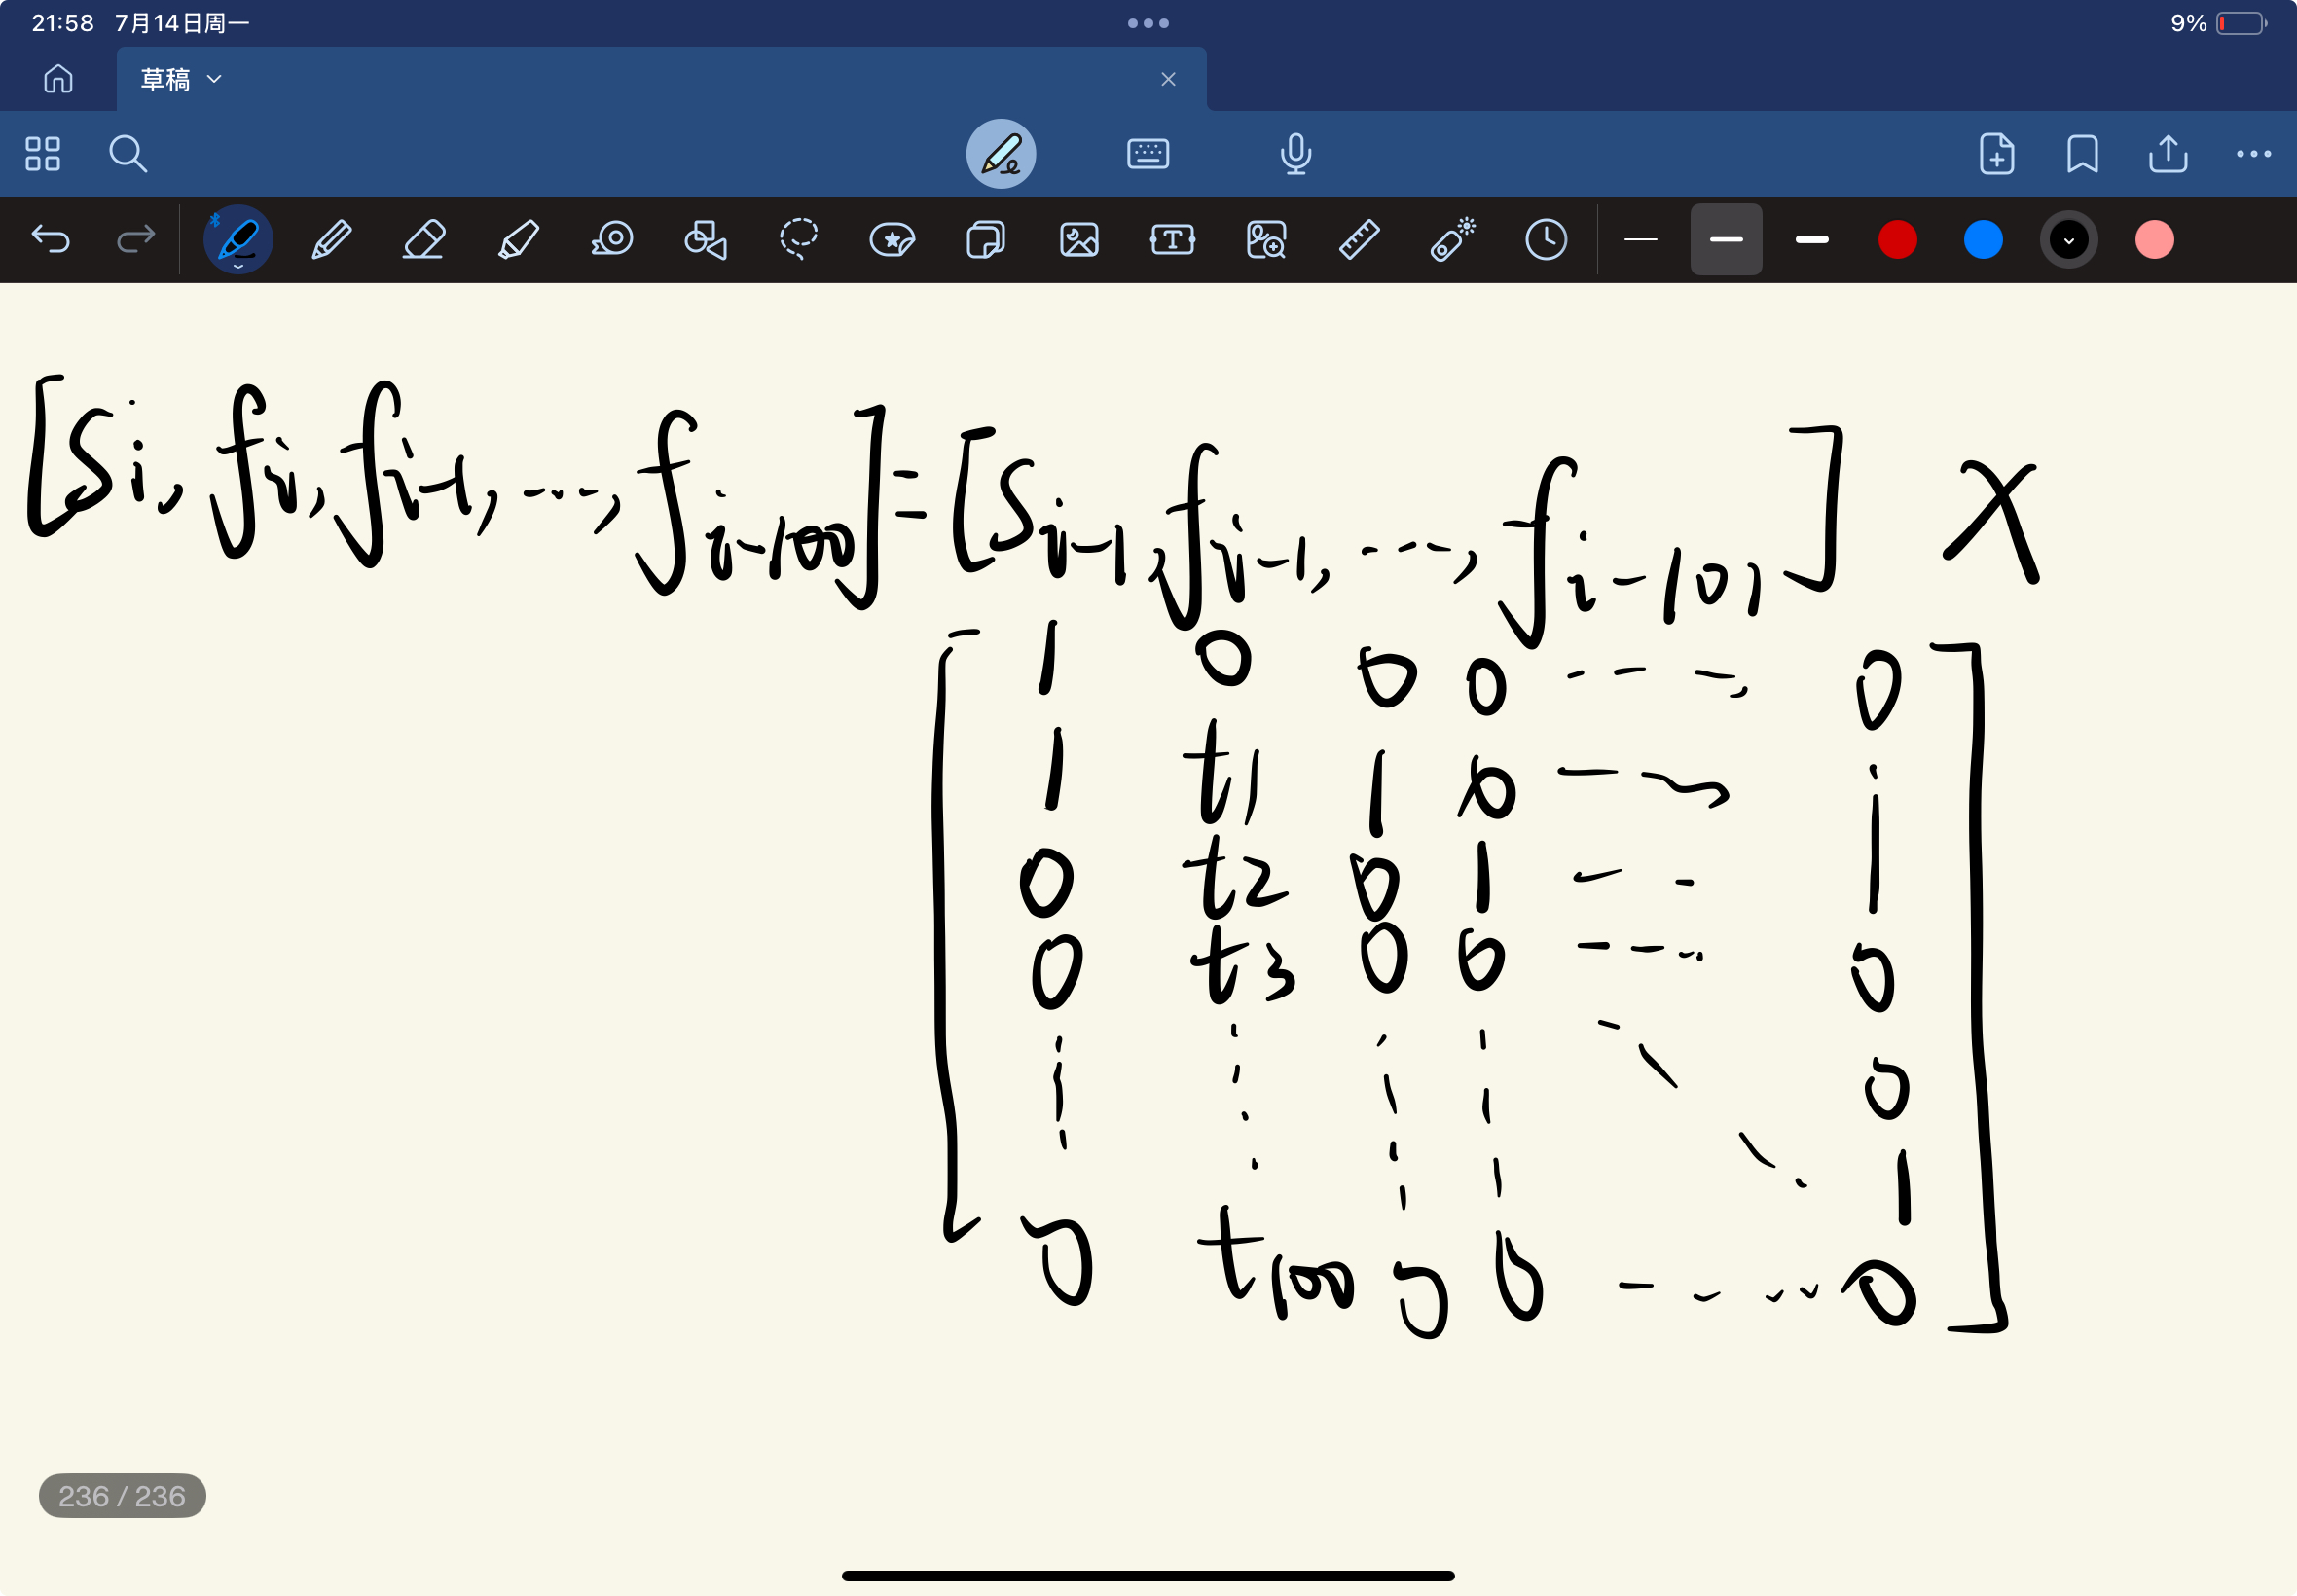 21:58 7月14日周一 9%
草稿
[Si, fi, fi-1, ..., fi-100] = [Si-1, fi-1, ..., fi-101] X
1 0 0 0 --- 0
1 t1 1 0 ---
0 t2 0 1 ---
0 t3 0 0 --- 0
0
1
0 t100 0 0 --- 0
236 / 236